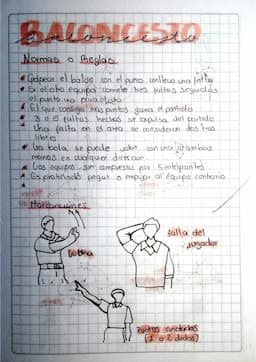 BALONCESTO
baloncesto
Normas o Reglas
Golpear el balon con el puno conlleva una falta
Si el otro equipo comete tres faltas seguidas
el punto
El que consiga mas puntos gana el partido
3 o 5 faltas hechas se expulsa del partido
Una falta en el aro se consideran dos tiros
libres
La bola se puede con una o ambas
manos en cualquier direccion
Los equipos son compuestos por 5 integrantes
Es prohibido pegar o empujar al equipo contrario
falla del
jugador
puntos anotados
(1 o 2 dedos)